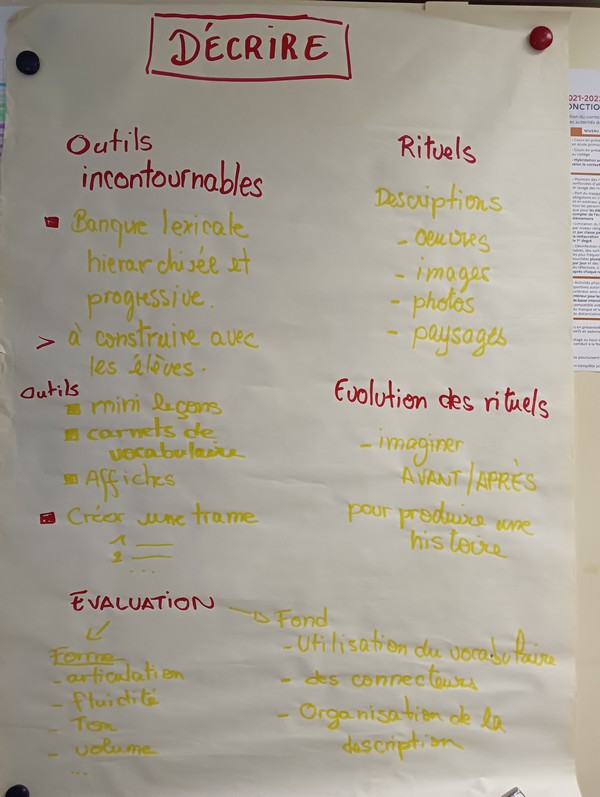 DÉCRIRE
Outils
incontournables
Banque lexicale
hierarchisée et
progressive.
> à construire avec
les élèves.
Outils
mini leçons
carnets de
vocabulaire
Affiches
Créer une trame
1
2
...
Rituels
Descriptions
- oeuvres
- images
- photos
- paysages
Evolution des rituels
- imaginer
AVANT / APRÈS
pour produire une
histoire
ÉVALUATION
Forme
- articulation
- fluidité
- Ton
- volume
...
Fond
- Utilisation du vocabulaire
- des connecteurs
- Organisation de la
description
021-2022
ONCTION
NIVEAU